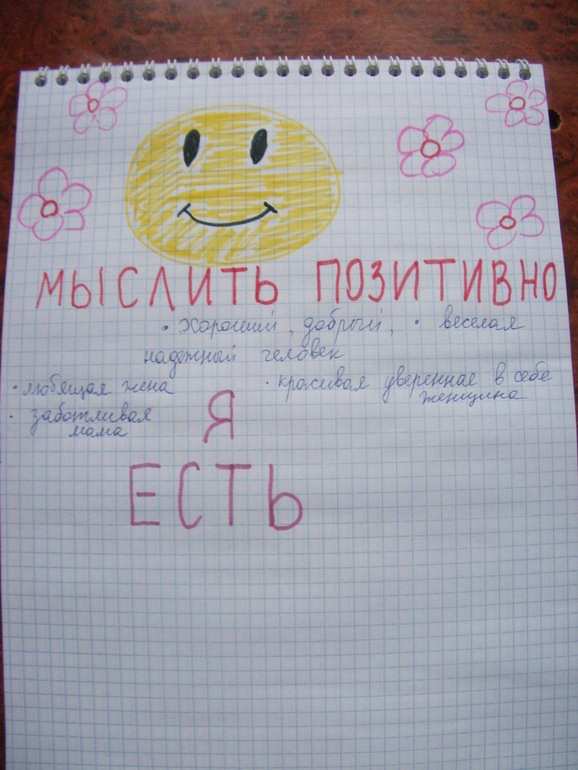 МЫСЛИТЬ ПОЗИТИВНО
• Хороший, добрый, • веселая
надежный человек
• любящая жена • красивая уверенная в себе
женщина
• заботливая
мама
Я
ЕСТЬ